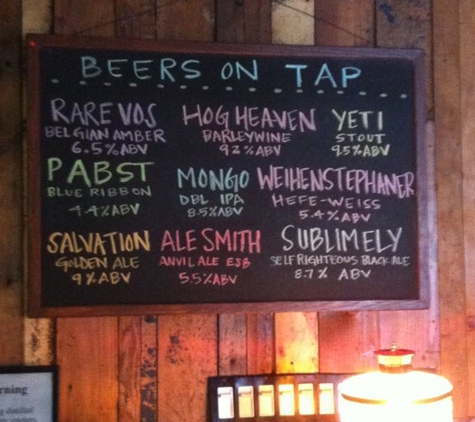 BEERS ON TAP
RARE VOS
BELGIAN AMBER
6.5% ABV
HOG HEAVEN
BARLEYWINE
9.2% ABV
YETI
STOUT
9.5% ABV
PABST
BLUE RIBBON
4.4% ABV
MONGO
DBL IPA
8.5% ABV
WEIHENSTEPHANER
HEFE-WEISS
5.4% ABV
SALVATION
GOLDEN ALE
9% ABV
ALE SMITH
ANVIL ALE ESB
5.5% ABV
SUBLIMELY
SELF RIGHTEOUS BLACK ALE
8.7% ABV
rning
distilled